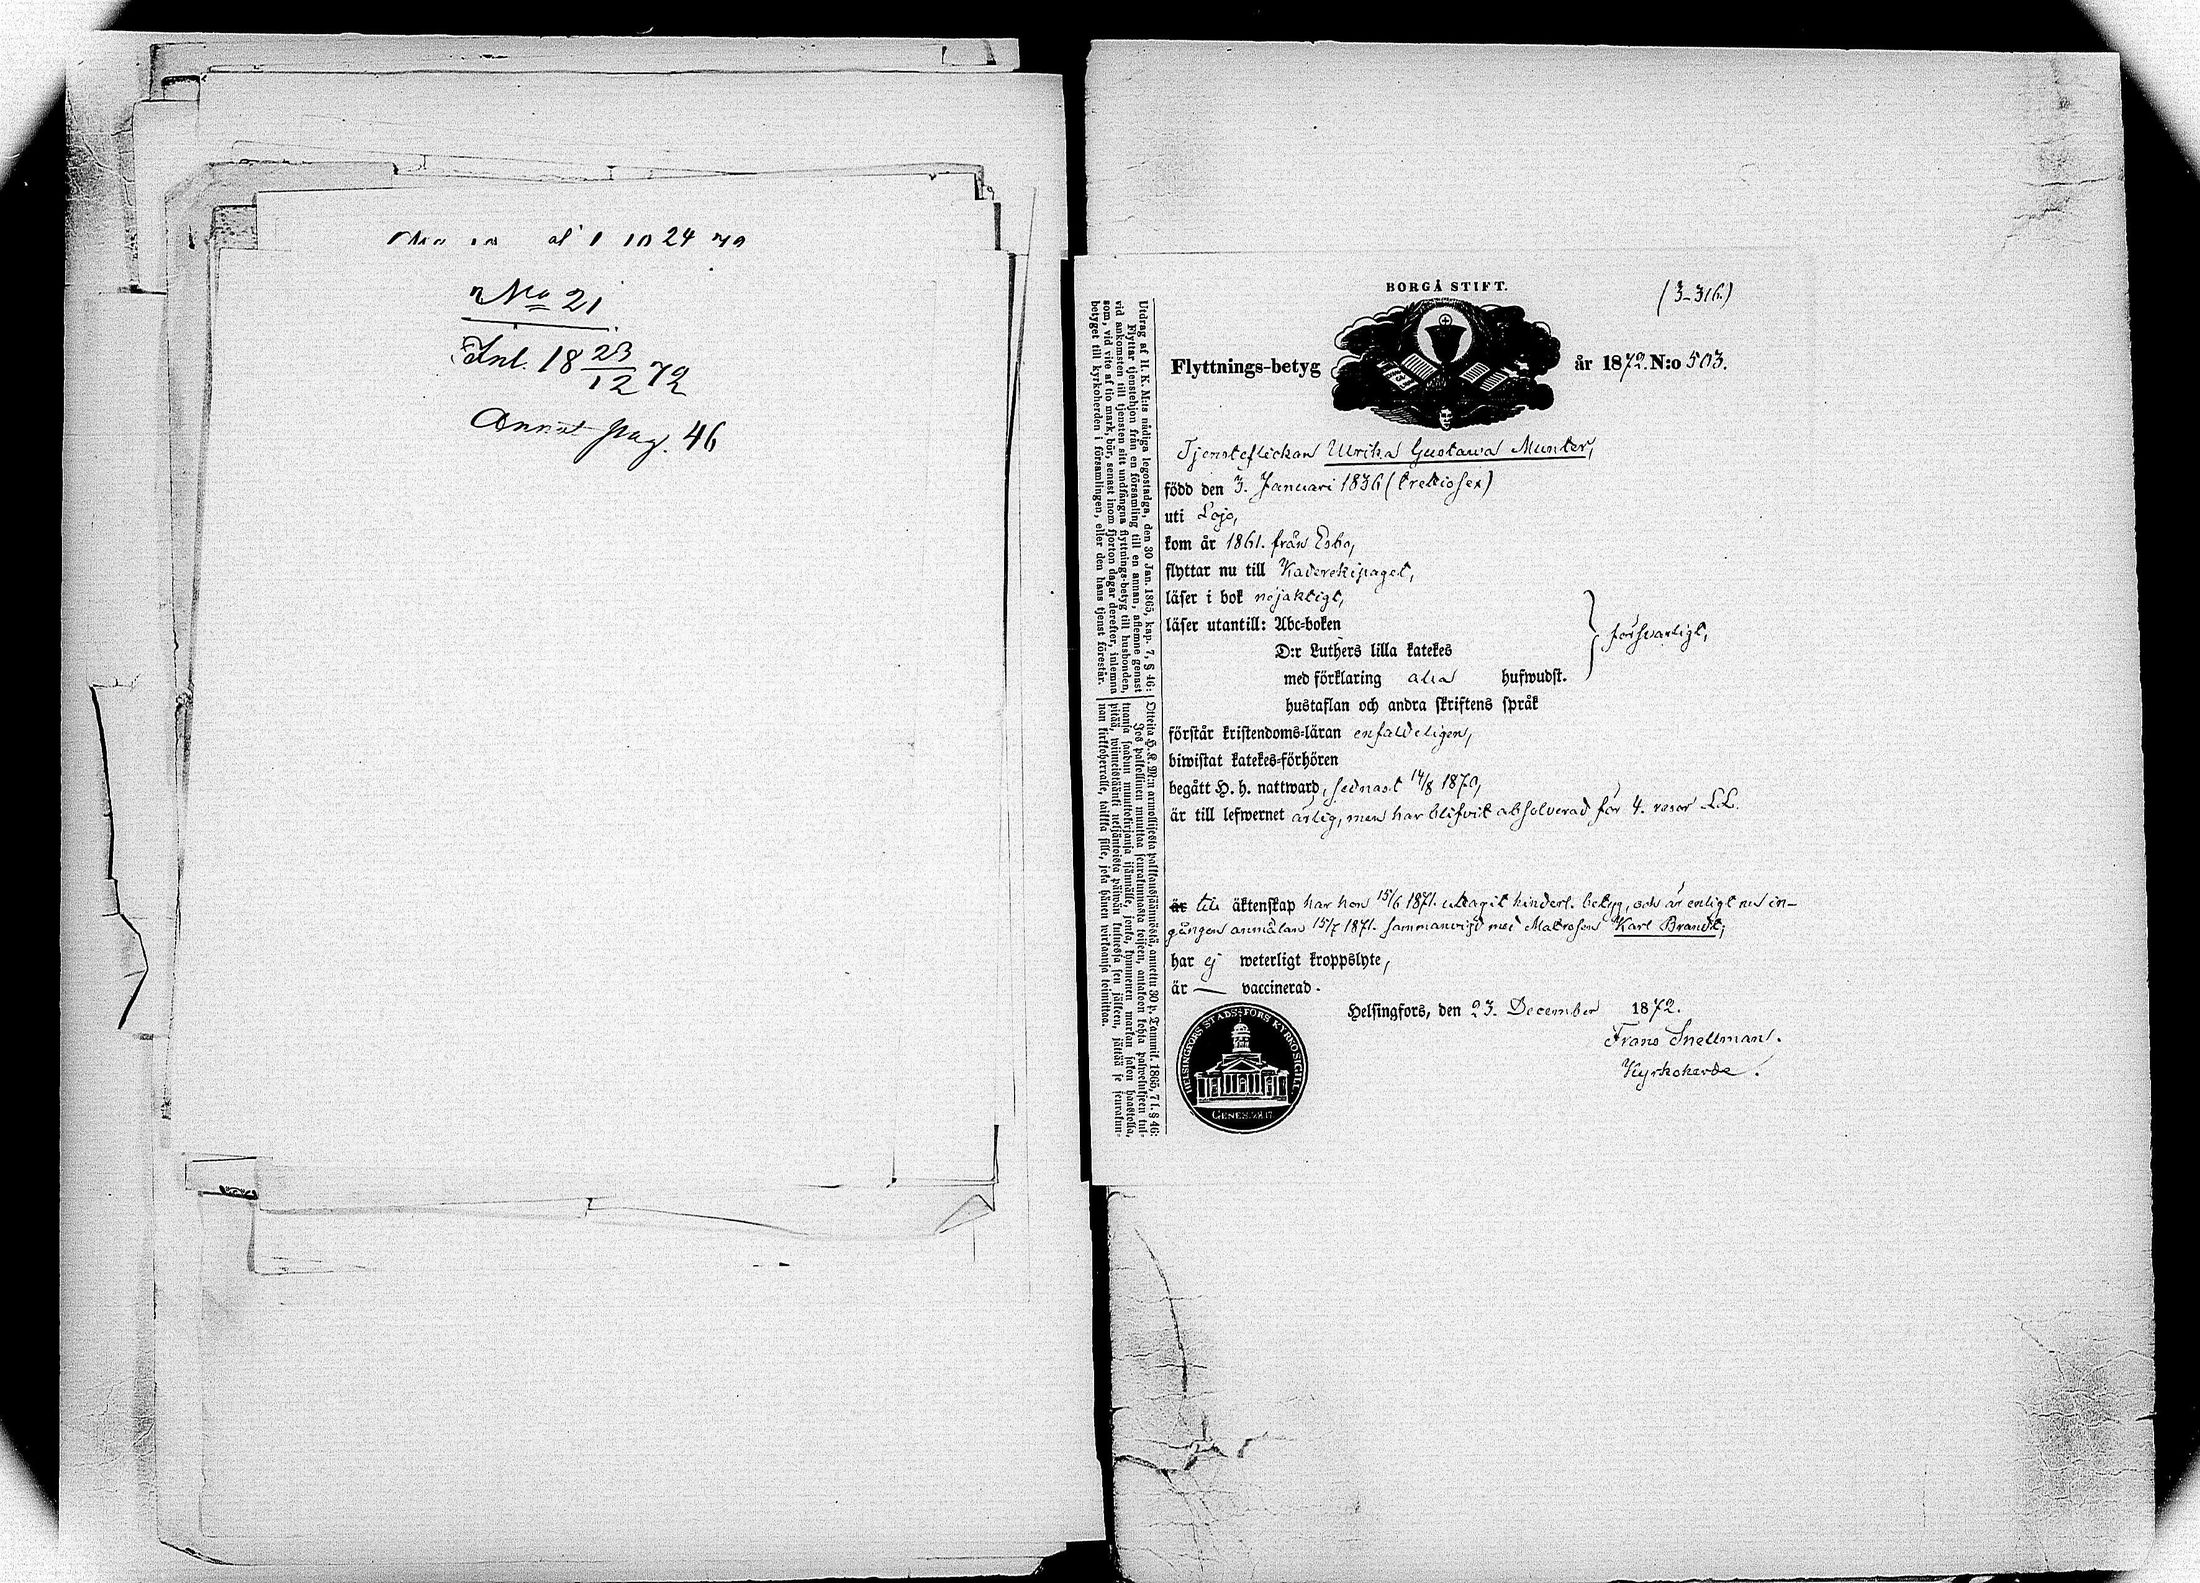 24
No 21
Inl. 18 23/12 72
Annot pag. 46
BORGÅ STIFT.
(3-316.)
Flyttnings-betyg år 1872. N:o 503.
Tjensteflickan Ulrika Gustava Munter,
född den 3. Januari 1836 (trettiosex)
uti Lojo,
kom år 1861. från Esbo,
flyttar nu till
läser i bok nöjaktigt,
läser utantill: Abc-boken
D:r Luthers lilla katekes
med förklaring alla hufwudst.
hustaflan och andra skriftens språk
försvarligt,
förstår kristendoms-läran enfaldeligen,
biwistat katekes-förhören
begått H. h. nattward, sednast 14/8 1870,
är till lefwernet ärlig, men har blifvit absolverad för 4. resor L.L.
är till äktenskap har hon 15/6 1871. uttagit hinderl. betyg, och är enligt nu in-
gången anmälan 15/7 1871. sammanvigd med Matrosen Karl Brandt;
har ej weterligt kroppslyte,
är — vaccinerad.
Helsingfors, den 23. December 1872.
Frans Snellman.
Kyrkoherde.
HELSINGFORS STADSFÖRS KYRKOSIGILL
GENES. 28. 17.
Utdrag af H. K. M:ts nådiga legostadga, den 30 Jan. 1865, kap. 7, § 46:
Flyttar tjenstehjon från en församling till en annan, aflemne genast
vid ankomsten till tjensten sitt undfångna flyttnings-betyg till husbonden,
som, vid vite af tio mark, bör, senast inom fjorton dagar derefter, inlemna
betyget till kyrkoherden i församlingen, eller den hans tjenst förestår.
Otteita H. K. M:n armollisesta palkkaussäännöstä, annettu 30 p. Tammik. 1865, 7 l. § 46:
Jos palkollinen muuttaa seurakunnasta toiseen, antakoon kohta palwelukseen tul-
tuansa saadun muuttokirjansa isännälle, jonka, kymmenen markan sakon haastolla,
pitää, wiimeistäänki neljäntoista päiwän kuluessa sen jälkeen, jättää se seurakun-
nan kirkkoherralle, taikka sille, joka hänen wirkaansa toimittaa.